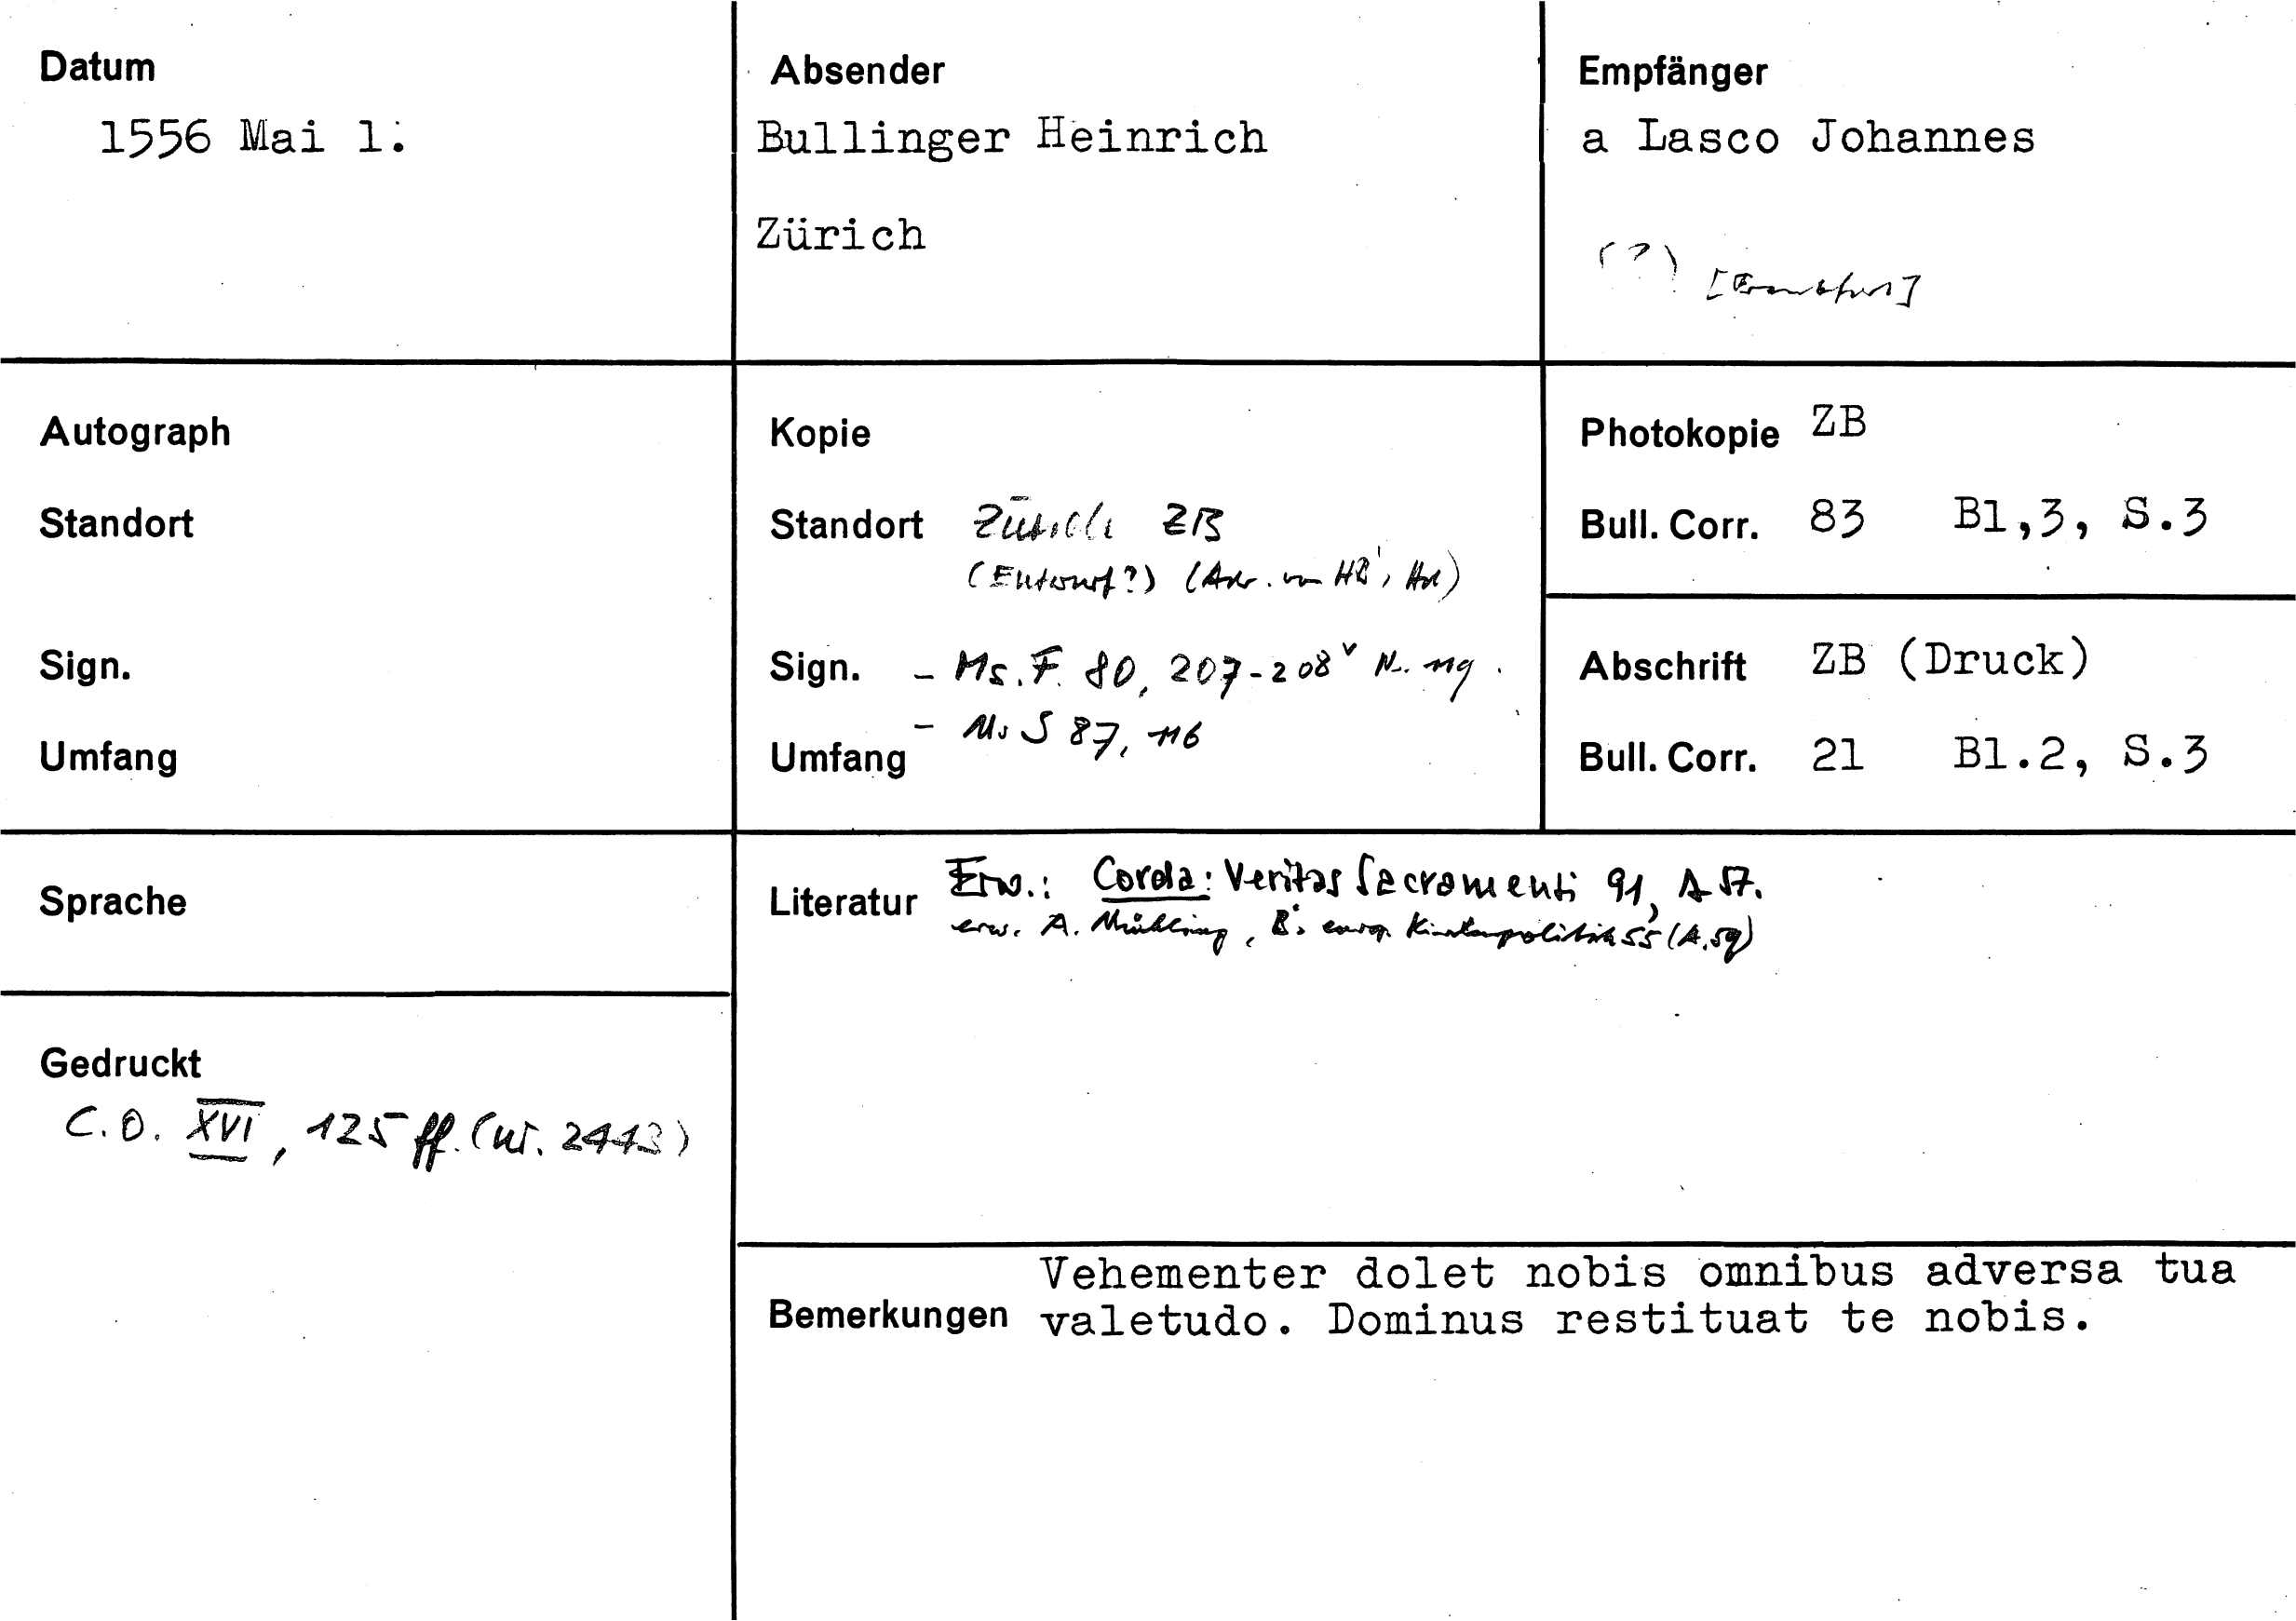 Datum
1556 Mai 1.
Absender
Bullinger Heinrich
Zürich
Empfänger
a Lasco Johannes
(?) [Frankfurt]
Autograph
Standort
Sign.
Umfang
Kopie
Standort Zürich ZB
(Entwurf?) (Adr. von HB's Hd)
Sign. - Ms. F. 80, 207-208v N. 119.
- Ms S 87, 116
Umfang
Photokopie ZB
Bull. Corr. 83 Bl,3, S.3
Abschrift ZB (Druck)
Bull. Corr. 21 Bl.2, S.3
Sprache
Literatur Erw.: Corda: Veritas Sacramenti 91, A 57.
erw. A. Mühling, B's europ. Kirchenpolitik 55 (A. 59)
Gedruckt
C.O. XVI, 125 ff. (Nr. 2443)
Bemerkungen Vehementer dolet nobis omnibus adversa tua
valetudo. Dominus restituat te nobis.